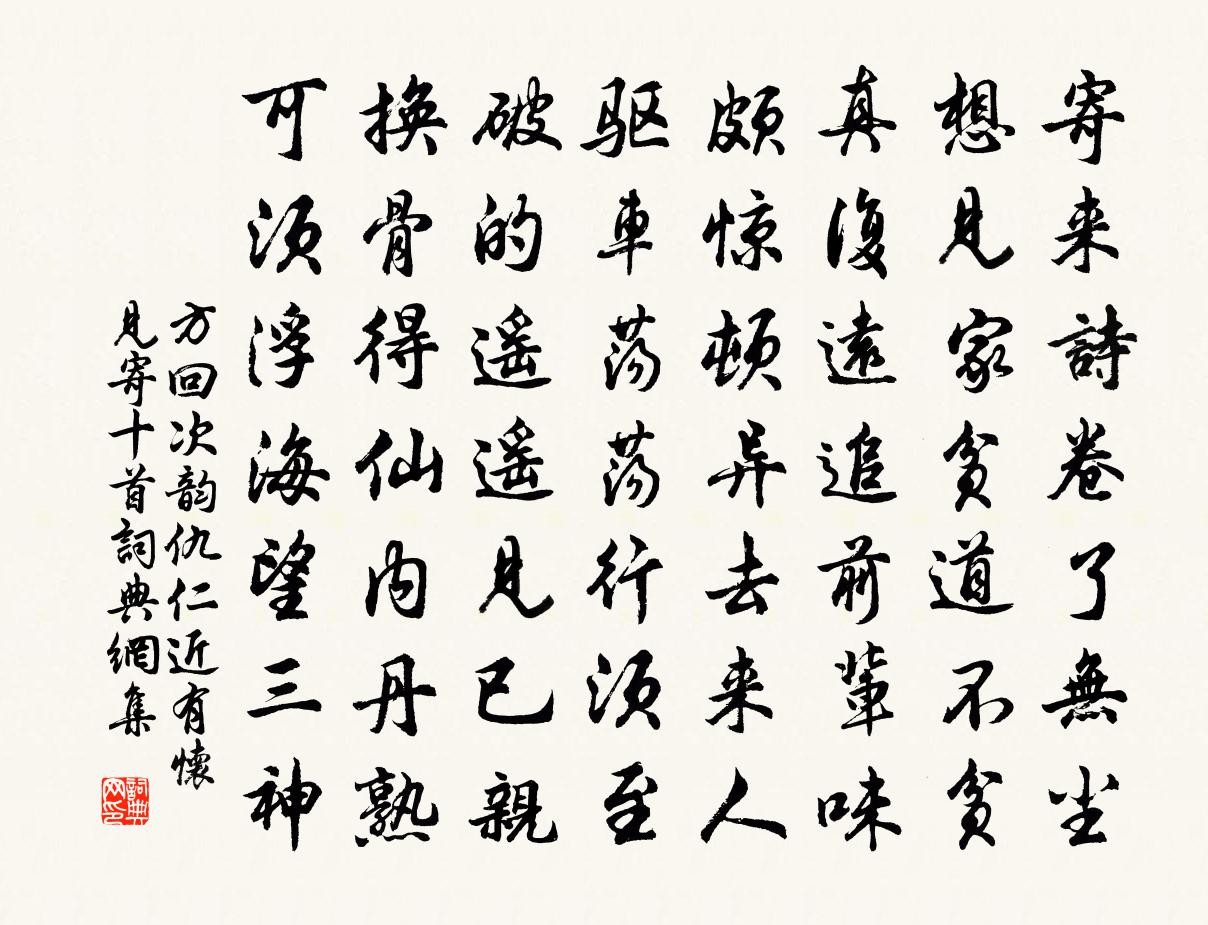 寄来詩卷了無尘
想見家貧道不貧
真復遠追前輩味
頗惊頓异去来人
驱車荡荡行须至
破的遥遥見已親
換骨得仙内丹熟
可须浮海望三神
方回次韵仇仁近有懐
見寄十首詞典網集
詞典网印